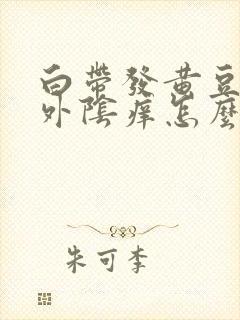 白帶發黃豆
外陰痒怎麼
朱可李